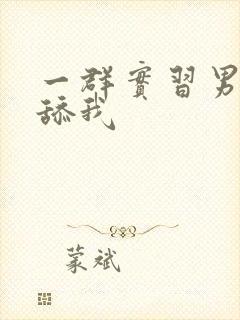 一群實習男
舔我
蒙斌